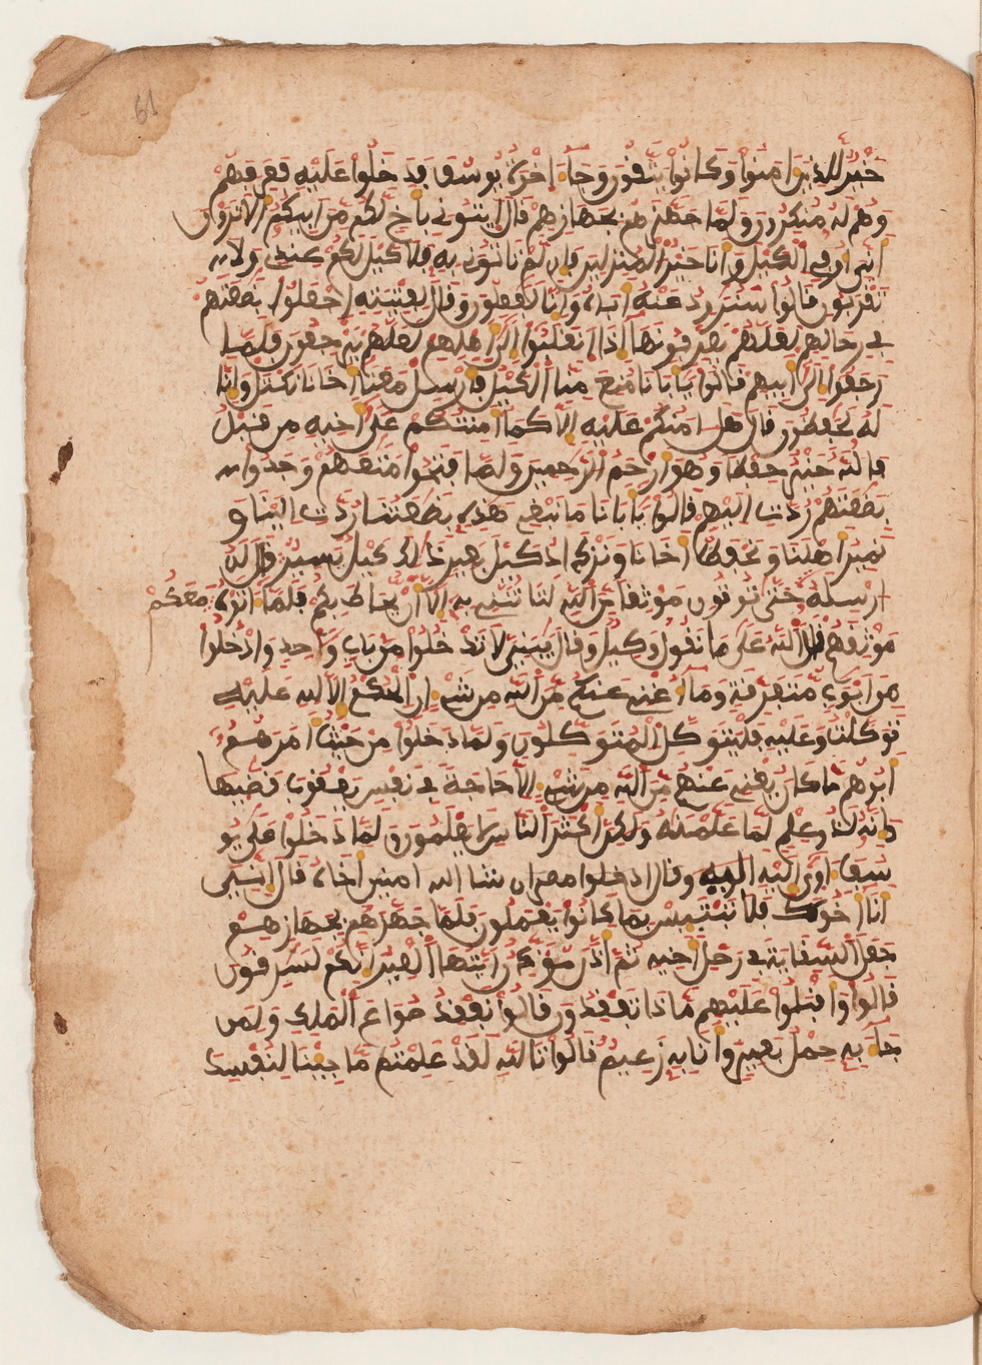 61
خَيْرٌ لِّلذِينَ ءَامَنُوا وَكَانُوا يَتَّقُونَ وَجَاءَ اخْوَةُ يُوسُفَ فَدَخَلُوا عَلَيْهِ فَعَرَفَهُمْ
وَهُمْ لَهُ مُنكِرُونَ وَلَمَّا جَهَّزَهُم بِجَهَازِهِمْ قَالَ ايتُونِي بِأَخٍ لَّكُم مِّنَ ابِيكُمُ أَلَا تَرَوْنَ
أَنِّي أُوفِي الْكَيْلَ وَأَنَا خَيْرُ الْمُنزِلِينَ فَإِن لَّمْ تَاتُونِي بِهِ فَلَا كَيْلَ لَكُمْ عِندِي وَلَا
تَقْرَبُونِ قَالُوا سَنُرَاوِدُ عَنْهُ أَبَاهُ وَإِنَّا لَفَاعِلُونَ وَقَالَ لِفِتْيَتِهِ اجْعَلُوا بِضَاعَتَهُمْ
فِي رِحَالِهِمْ لَعَلَّهُمْ يَعْرِفُونَهَا إِذَا انقَلَبُوا إِلَى أَهْلِهِمْ لَعَلَّهُمْ يَرْجِعُونَ فَلَمَّا
رَجَعُوا إِلَى أَبِيهِمْ قَالُوا يَأَبَانَا مُنِعَ مِنَّا الْكَيْلُ فَأَرْسِلْ مَعَنَا أَخَانَا نَكْتَلْ وَإِنَّا
لَهُ لَحَافِظُونَ قَالَ هَلَ امَنُكُمْ عَلَيْهِ إِلَّا كَمَا أَمِنتُكُمْ عَلَى أَخِيهِ مِن قَبْلُ
فَاللَّهُ خَيْرٌ حِفْظًا وَهُوَ أَرْحَمُ الرَّاحِمِينَ وَلَمَّا فَتَحُوا مَتَاعَهُمْ وَجَدُوا
بِضَاعَتَهُمْ رُدَّتِ الَيْهِمْ قَالُوا يَأَبَانَا مَا نَبْغِي هَذِهِ بِضَاعَتُنَا رُدَّتِ الَيْنَا وَ
نَمِيرُ أَهْلَنَا وَنَحْفَظُ أَخَانَا وَنَزْدَادُ كَيْلَ بَعِيرٍ ذَلِكَ كَيْلٌ يَسِيرٌ قَالَ لَنُ
ارْسِلَهُ حَتَّى تُوتُونِ مَوْثِقًا مِّنَ اللَّهِ لَتَاتُنَّنِي بِهِ إِلَّا أَنْ يُحَاطَ بِكُمْ فَلَمَّا ءَاتَوْهُ مَعَكُمْ
مَوْثِقَهُمْ قَالَ اللَّهُ عَلَى مَا نَقُولُ وَكِيلٌ وَقَالَ يَبَنِيَّ لَا تَدْخُلُوا مِن بَابٍ وَاحِدٍ وَادْخُلُوا
مِنَ ابْوَابٍ مُّتَفَرِّقَةٍ وَمَا أُغْنِي عَنكُم مِّنَ اللَّهِ مِن شَيْءٍ إِنِ الْحُكْمُ إِلَّا لِلَّهِ عَلَيْهِ
تَوَكَّلْتُ وَعَلَيْهِ فَلْيَتَوَكَّلِ الْمُتَوَكِّلُونَ وَلَمَّا دَخَلُوا مِنْ حَيْثُ أَمَرَهُمُ
أَبُوهُم مَّا كَانَ يُغْنِي عَنْهُم مِّنَ اللَّهِ مِن شَيْءٍ إِلَّا حَاجَةً فِي نَفْسِ يَعْقُوبَ قَضَيهَا
وَإِنَّهُ لَذُو عِلْمٍ لِّمَا عَلَّمْنَاهُ وَلَكِنَّ أَكْثَرَ النَّاسِ لَا يَعْلَمُونَ وَلَمَّا دَخَلُوا عَلَى يُو
سُفَ ءَاوَى إِلَيْهِ وَقَالَ ادخلوا مصر ان شا الله امنين أَخَاهُ قَالَ إِنِّي
أَنَا أَخُوكَ فَلَا تَبْتَئِسْ بِمَا كَانُوا يَعْمَلُونَ فَلَمَّا جَهَّزَهُم بِجَهَازِهِمْ
جَعَلَ السِّقَايَةَ فِي رَحْلِ أَخِيهِ ثُمَّ أَذَّنَ مُؤَذِّنٌ أَيَّتُهَا الْعِيرُ إِنَّكُمْ لَسَارِقُونَ
قَالُوا وَأَقْبَلُوا عَلَيْهِم مَّاذَا تَفْقِدُونَ قَالُوا نَفْقِدُ صُوَاعَ الْمَلِكِ وَلِمَن
جَاءَ بِهِ حِمْلُ بَعِيرٍ وَأَنَا بِهِ زَعِيمٌ قَالُوا تَاللَّهِ لَقَدْ عَلِمْتُم مَّا جِئْنَا لِنُفْسِدَ